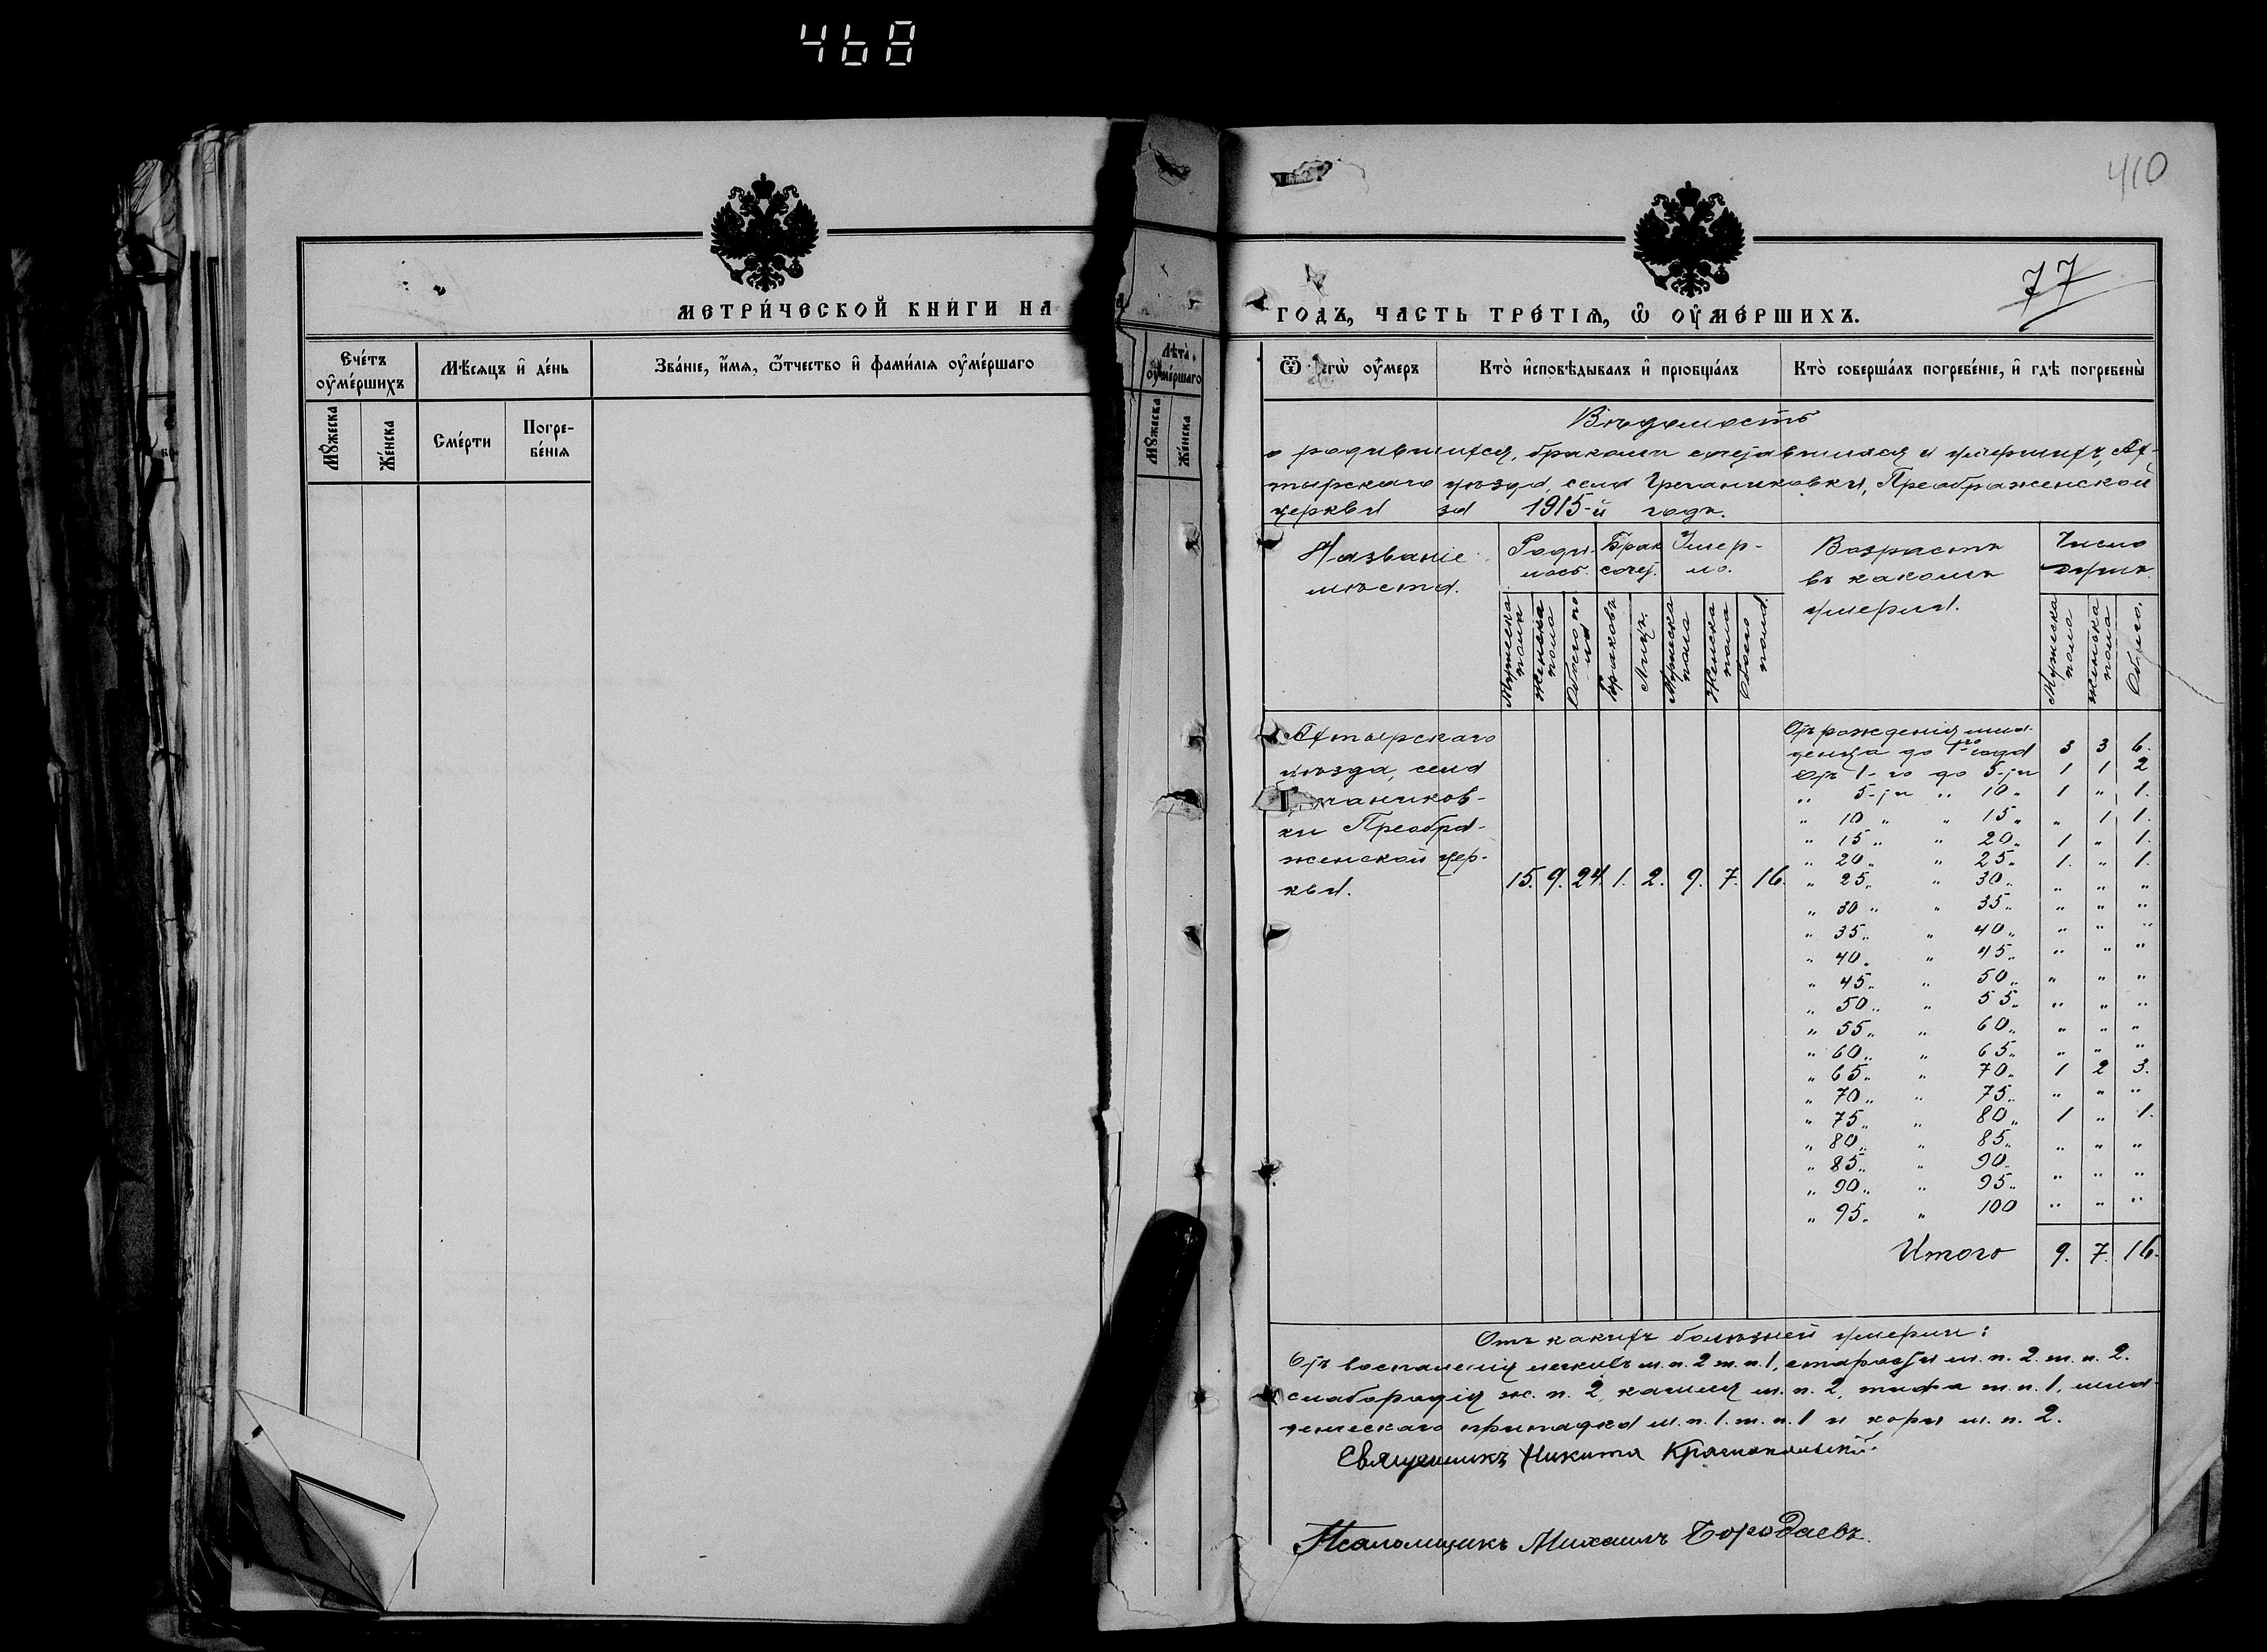 468
410
77
МЕТРИ́ЧЕСКОЙ КНИ́ГИ НА
ГОДЪ, ЧАСТЬ ТРЕ́ТІѦ, Ѡ ОУМЕ́РШИХЪ.
Счётъ оумершихъ
Мѣсяцъ и день
Званіе, имя, ѿчество и фамилія оумершаго
Лѣта оумершаго
Мꙋжеска
Женска
Смерти
Погребенія
Мꙋжеска
Женска
Ѿ чегѡ оумеръ
Кто исповѣдывалъ и пріобщалъ
Кто совершалъ погребеніе, и гдѣ погребены
Вѣдомость
о родившихся, бракомъ сочетавшихся и умершихъ, Ах-
тырскаго уѣзда, села Гречаниковки, Преображенской
церкви за 1915-й годъ.
Названіе мѣста.
Роди- лось.
Брак. сочет.
Умер- ло.
Возрастъ въ какомъ умерли.
Число душъ.
Мужеска пола
Женска пола
Обоего пола
Браковъ
Лицъ.
Мужеска пола
Женска пола
Обоего пола.
Мужеска пола
Женска пола
Обоего.
Ахтырскаго
уѣзда, села
Гречаников-
ки Преобра-
женской цер-
кви.
15. 9. 24. 1. 2. 9. 7. 16.
Отъ рожденія мла-
денца до 1-го года 3 3 6.
Отъ 1-го до 5-ти 1 1 2
„ 5-ти „ 10„ 1 „ 1.
„ 10„ „ 15„ „ 1 1.
„ 15„ „ 20„ 1 „ 1.
„ 20„ „ 25„ 1. „ 1.
„ 25„ „ 30„ „ „ „
„ 30„ „ 35„ „ „ „
„ 35„ „ 40„ „ „ „
„ 40„ „ 45„ „ „ „
„ 45„ „ 50„ „ „ „
„ 50„ „ 55„ „ „ „
„ 55„ „ 60„ „ „ „
„ 60„ „ 65„ „ „ „
„ 65„ „ 70„ 1 2 3.
„ 70„ „ 75„ „ „ „
„ 75„ „ 80„ 1 „ 1.
„ 80„ „ 85„ „ „ „
„ 85„ „ 90„
„ 90„ „ 95„ „ „ „
„ 95„ „ 100 „ „ „
Итого 9. 7. 16.
Отъ какихъ болѣзней умерли:
Отъ воспаленія легкихъ м. п. 2 ж. п. 1, старости м. п. 2. ж. п. 2.
слабородія ж. п. 2, кашля м. п. 2, тифа ж. п. 1, мла-
денческаго припадка м. п. 1. ж. п. 1 и кори м. п. 2.
Священникъ Никита
Псаломщикъ Михаилъ Бородаевъ.